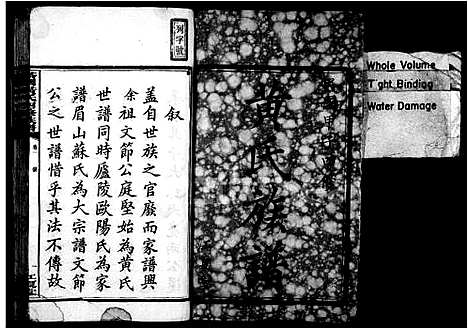 Whole Volume
Tight Binding
Water Damage
黄氏族譜
列字號
叙
蓋自世族之官廢而家譜興
余祖文節公庭堅始為黄氏
世譜同時廬陵歐陽氏為
譜眉山蘇氏為大宗譜文節
公之世譜惜乎其法不傳故